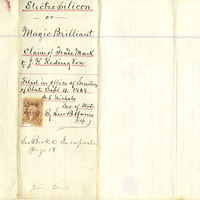 Electro Silicon
or
Magic Brilliant
Claim of Trade Mark
by J. W. Redington
Filed in office of Secretary
of State Sept 11 1868
H. L. Nichols
Sec. of State
By
Dep
See Book
Page 18